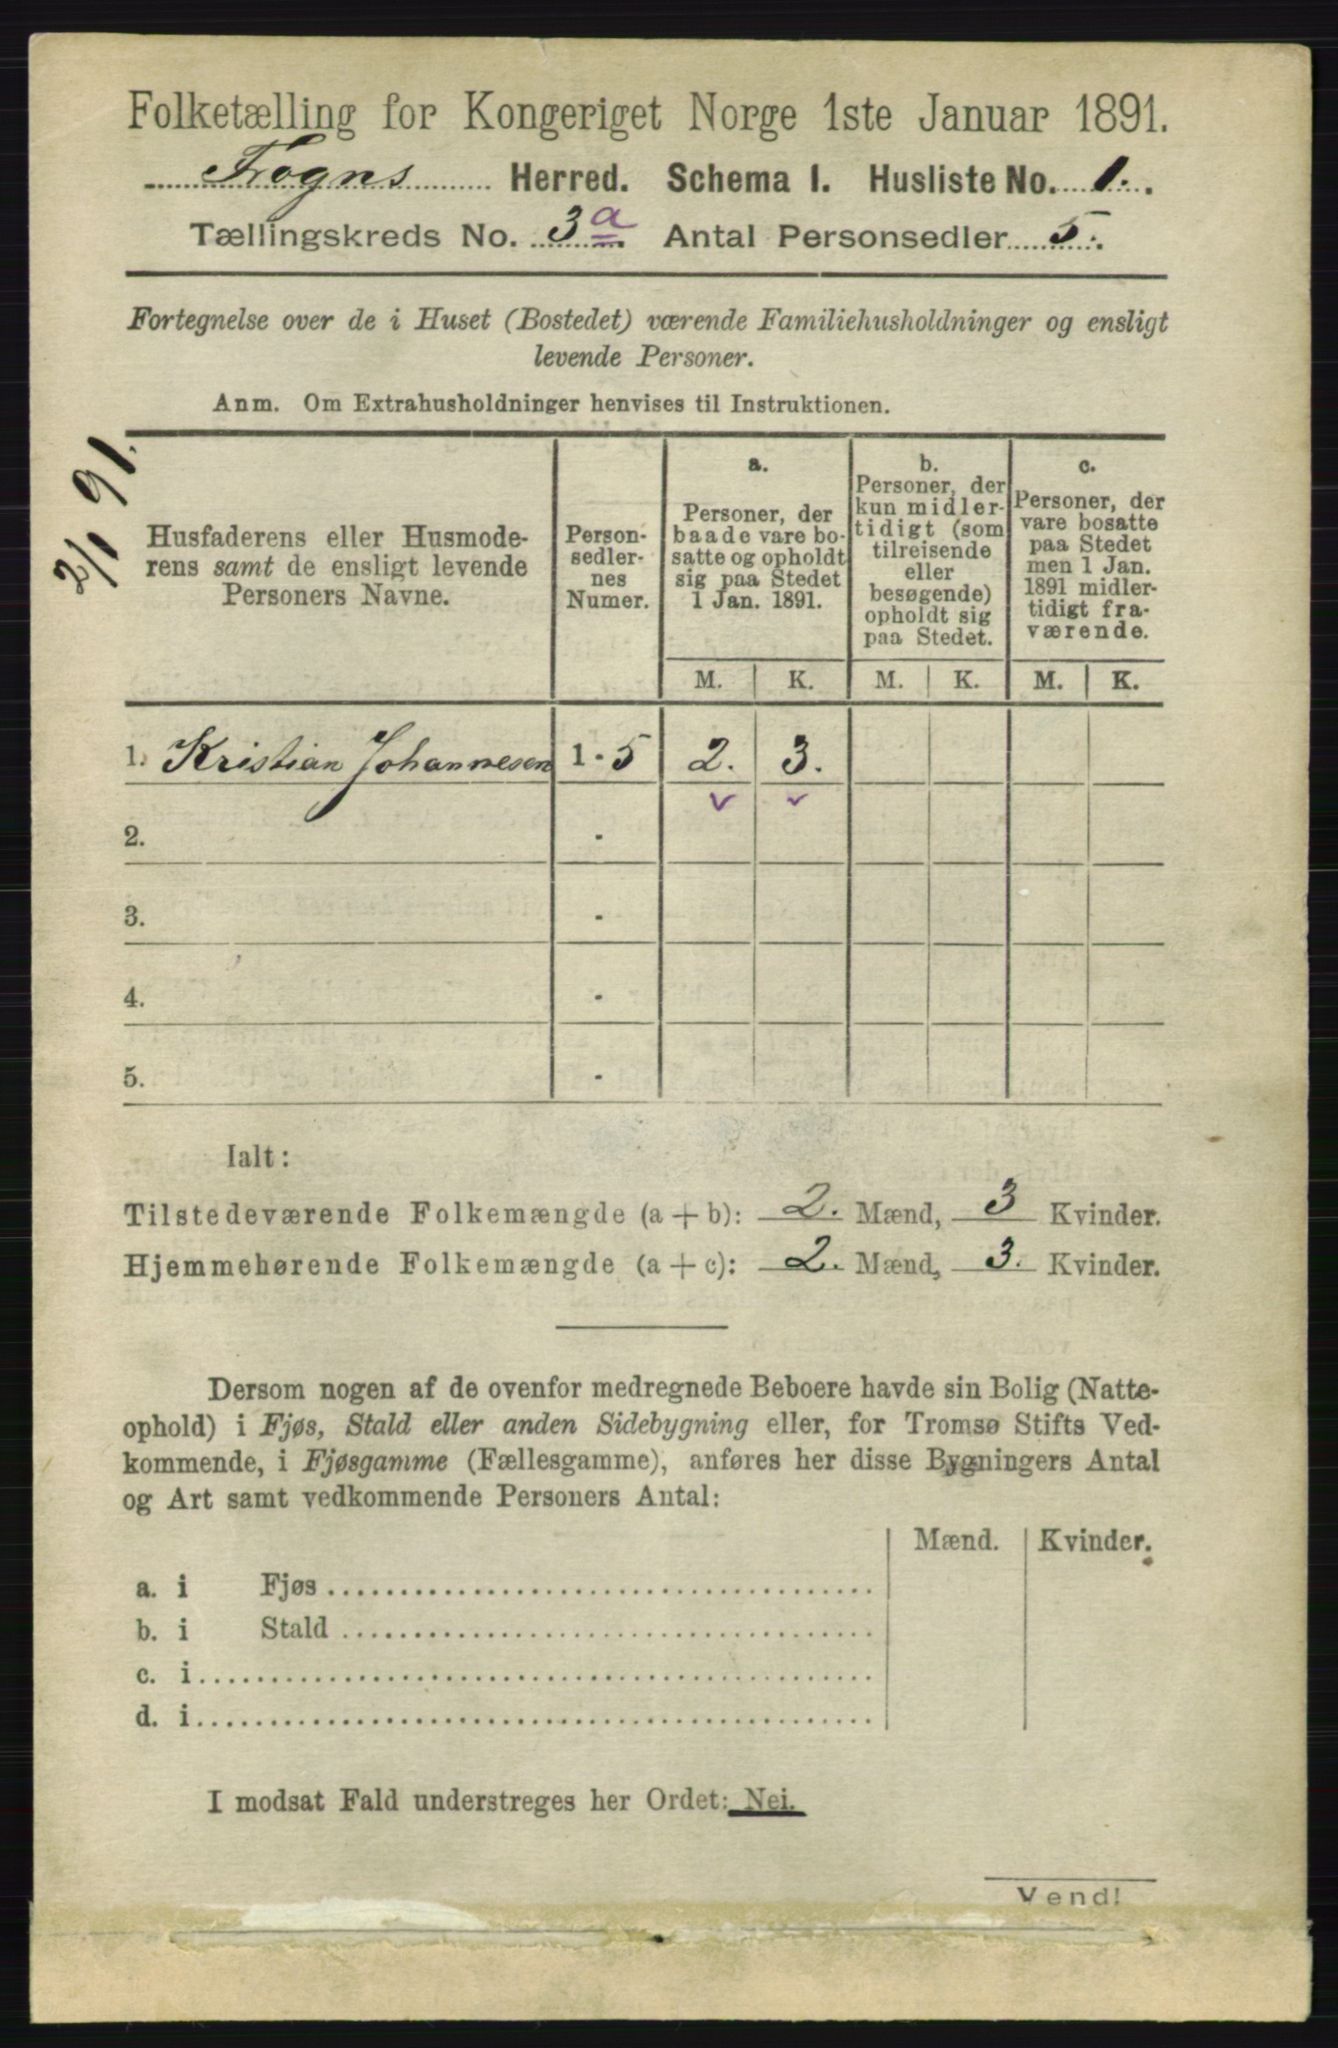 Folketælling for Kongeriget Norge 1ste Januar 1891.
Frogns Herred. Schema I. Husliste No. 1.
Tællingskreds No. 3a. Antal Personsedler 5.
Fortegnelse over de i Huset (Bostedet) værende Familiehusholdninger og ensligt
levende Personer.
Anm. Om Extrahusholdninger henvises til Instruktionen.
2/1 91.
Husfaderens eller Husmode-
rens samt de ensligt levende
Personers Navne.
Person-
sedler-
nes
Numer.
a.
Personer, der
baade vare bo-
satte og opholdt
sig paa Stedet
1 Jan. 1891.
b.
Personer, der
kun midler-
tidigt (som
tilreisende
eller
besøgende)
opholdt sig
paa Stedet.
c.
Personer, der
vare bosatte
paa Stedet
men 1 Jan.
1891 midler-
tidigt fra-
værende.
M. K. M. K. M. K.
1. Kristian Johannesen 1 - 5 2. 3.
2. -
3. -
4. -
5. -
Ialt:
Tilstedeværende Folkemængde (a + b): 2. Mænd, 3 Kvinder.
Hjemmehørende Folkemængde (a + c): 2. Mænd, 3. Kvinder.
Dersom nogen af de ovenfor medregnede Beboere havde sin Bolig (Natte-
ophold) i Fjøs, Stald eller anden Sidebygning eller, for Tromsø Stifts Ved-
kommende, i Fjøsgamme (Fællesgamme), anføres her disse Bygningers Antal
og Art samt vedkommende Personers Antal:
Mænd. Kvinder.
a. i Fjøs
b. i Stald
c. i
d. i
I modsat Fald understreges her Ordet: Nei.
Vend!